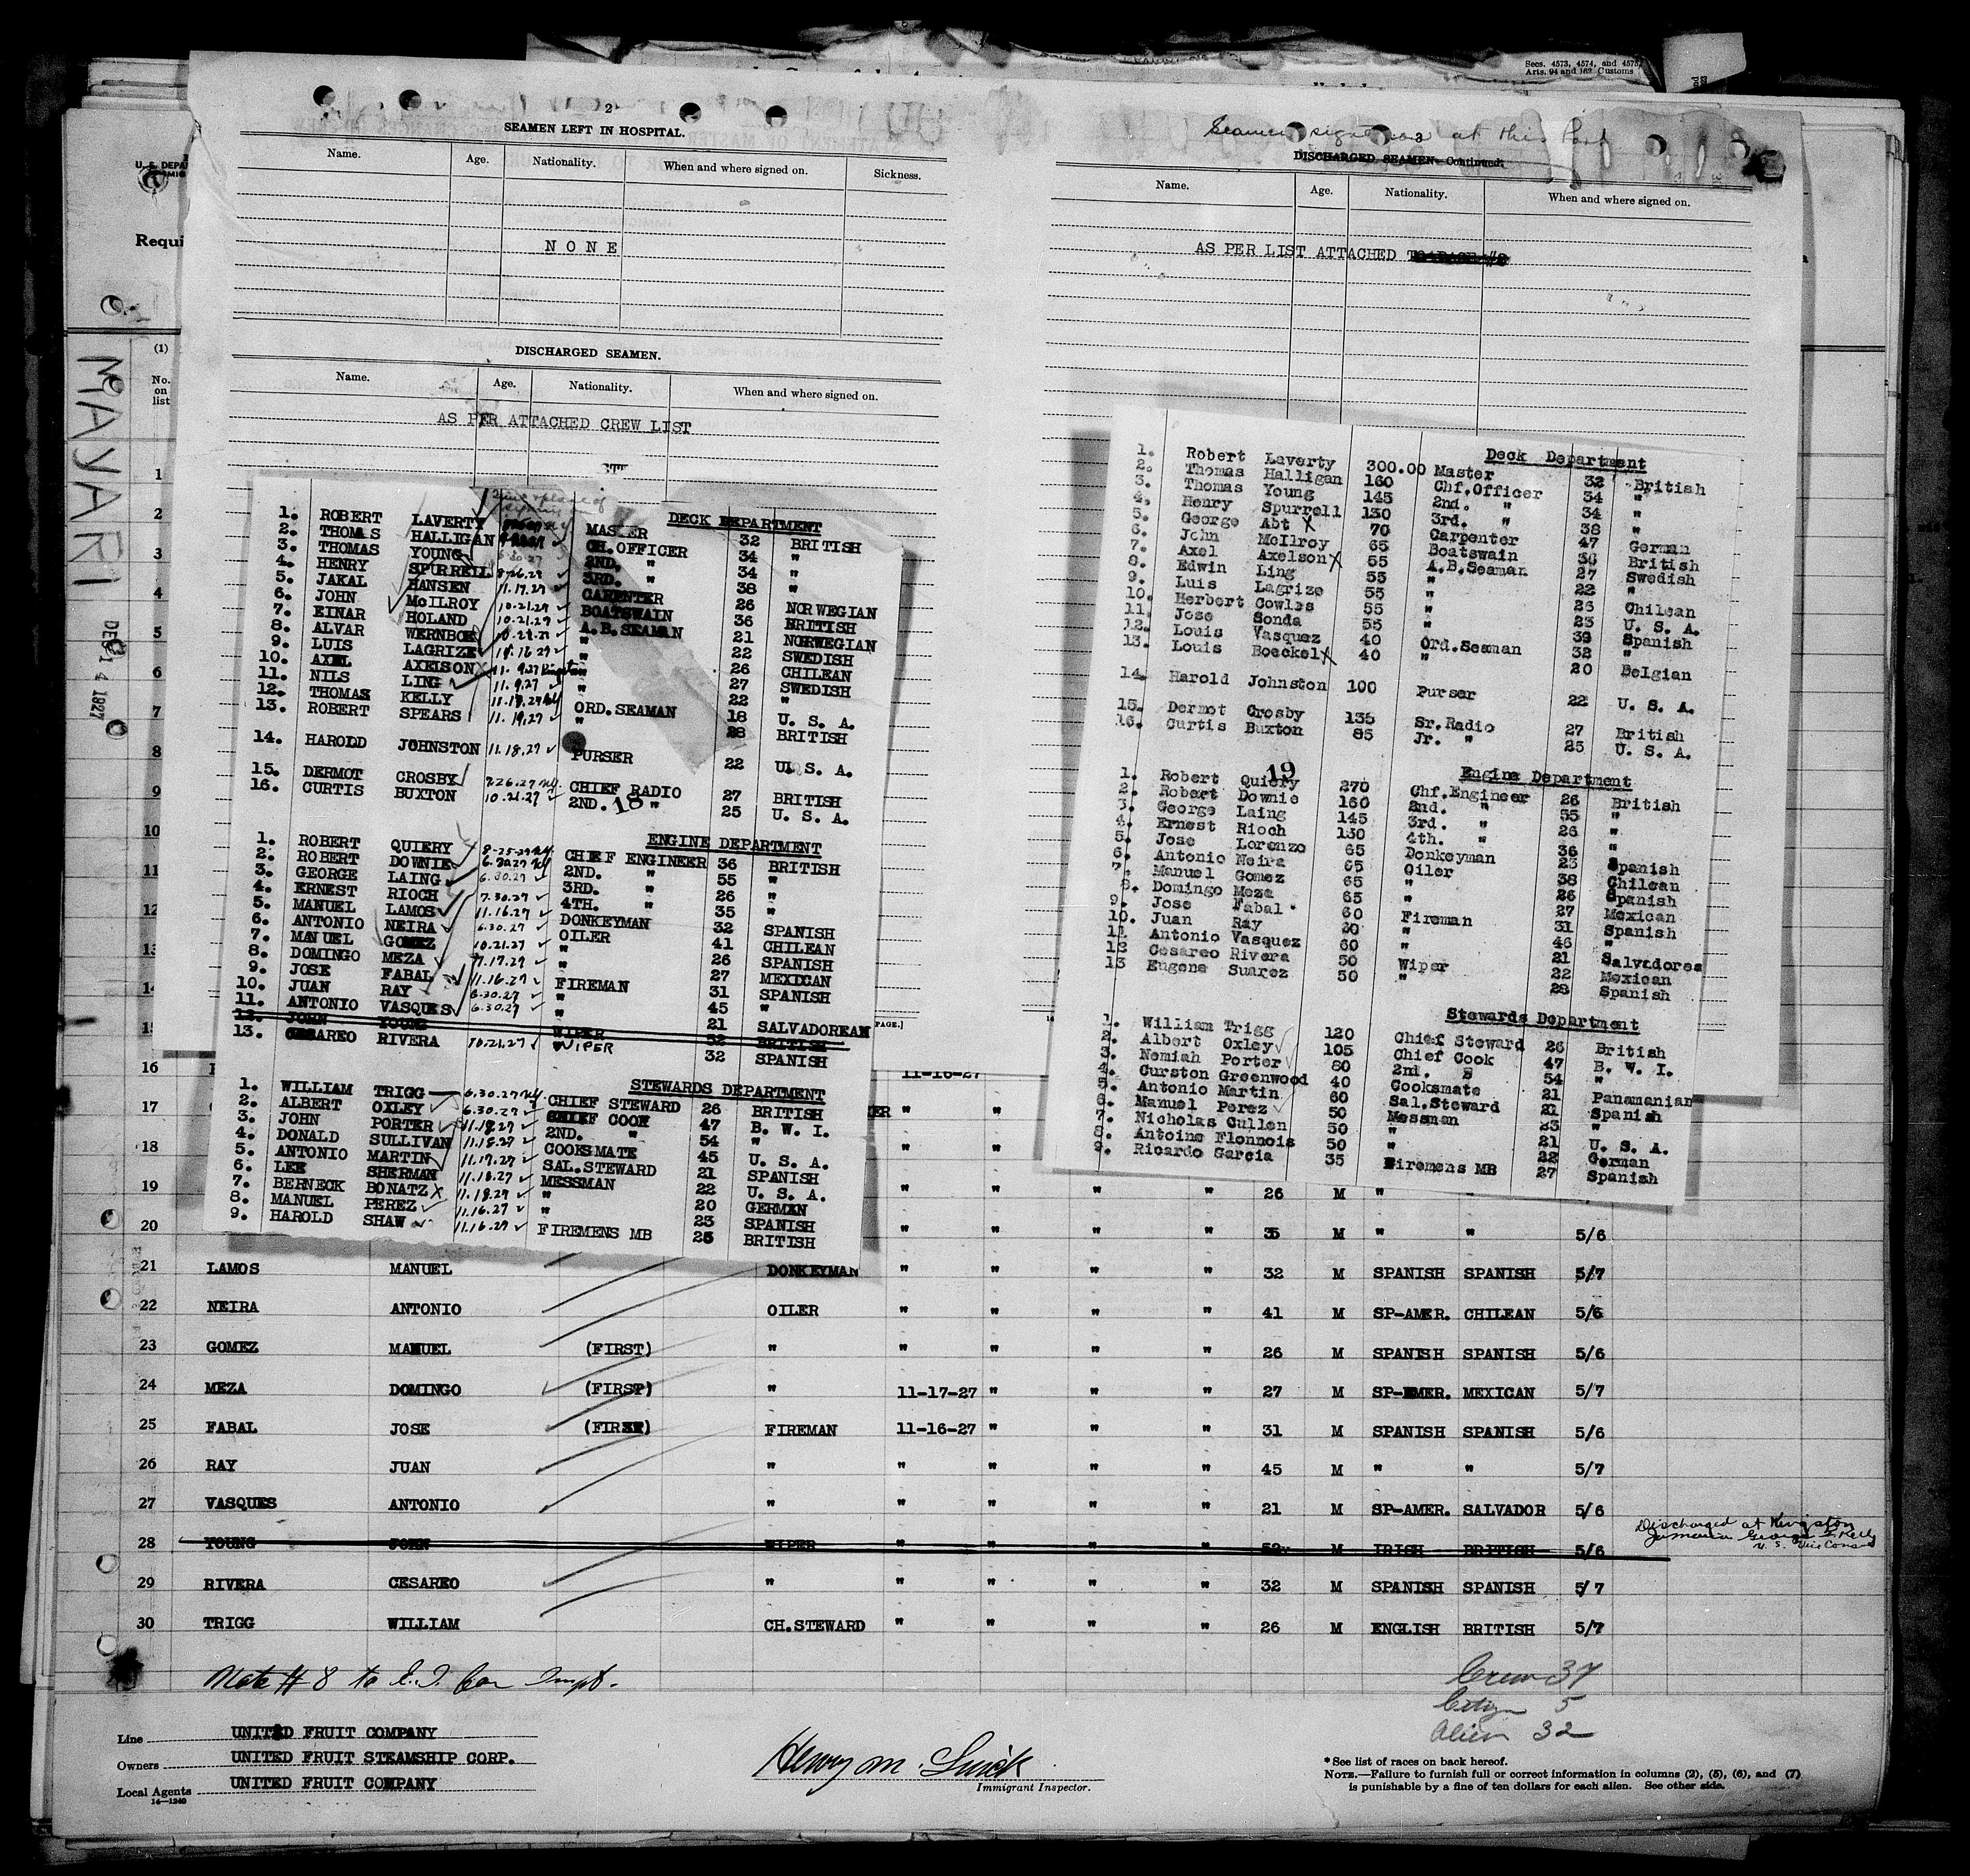 Secs. 4573, 4574, and 4575,
Arts. 94 and 162 Customs
2
SEAMEN LEFT IN HOSPITAL.
Name. Age. Nationality. When and where signed on. Sickness.
NONE
DISCHARGED SEAMEN.
Name. Age. Nationality. When and where signed on.
AS PER ATTACHED CREW LIST
DECK DEPARTMENT
1. ROBERT LAVERTY MASTER 32 BRITISH
2. THOMAS HALLIGAN CH.OFFICER 34 "
3. THOMAS YOUNG 2ND. " 34 "
4. HENRY SPURRELL 3RD. " 38 "
5. JAKAL HANSEN 11.17.27 CARPENTER 26 NORWEGIAN
6. JOHN McILROY 10.21.27 BOATSWAIN 36 BRITISH
7. EINAR HOLAND 10.21.27 A.B.SEAMAN 21 NORWEGIAN
8. ALVAR WERNBOE " 22 SWEDISH
9. LUIS LAGRIZE " 26 CHILEAN
10. AXEL AXELSON X 11.9.27 " 27 SWEDISH
11. NILS LING 11.9.27 " 22 "
12. THOMAS KELLY 11.18.27 ORD.SEAMAN 18 U. S. A.
13. ROBERT SPEARS 11.19.27 " 28 BRITISH
14. HAROLD JOHNSTON 11.18.27 PURSER 22 U. S. A.
15. DERMOT CROSBY CHIEF RADIO 27 BRITISH
16. CURTIS BUXTON 10.21.27 2ND. " 25 U. S. A.
18
ENGINE DEPARTMENT
1. ROBERT QUIERY CHIEF ENGINEER 36 BRITISH
2. ROBERT DOWNIE 6.30.27 2ND. " 55 "
3. GEORGE LAING 6.30.27 3RD. " 26 "
4. ERNEST RIOCH 7.30.27 4TH. " 35 "
5. MANUEL LAMOS 11.16.27 DONKEYMAN 32 SPANISH
6. ANTONIO NEIRA 6.30.27 OILER 41 CHILEAN
7. MANUEL GOMEZ 10.21.27 " 26 SPANISH
8. DOMINGO MEZA 11.17.27 " 27 MEXICAN
9. JOSE FABAL 11.16.27 FIREMAN 31 SPANISH
10. JUAN RAY 6.30.27 " 45 "
11. ANTONIO VASQUES 6.30.27 " 21 SALVADOREAN
12. JOHN YOUNG WIPER 52 BRITISH
13. CESAREO RIVERA 10.21.27 WIPER 32 SPANISH
STEWARDS DEPARTMENT
1. WILLIAM TRIGG 6.30.27 CHIEF STEWARD 26 BRITISH
2. ALBERT OXLEY 6.30.27 CHIEF COOK 47 B. W. I.
3. JOHN PORTER 11.18.27 2ND. " 54 "
4. DONALD SULLIVAN 11.18.27 COOKSMATE 45 U. S. A.
5. ANTONIO MARTIN 11.17.27 SAL.STEWARD 21 SPANISH
6. LEE SHERMAN 11.16.27 MESSMAN 22 U. S. A.
7. BERNECK BONATZ X 11.18.27 " 20 GERMAN
8. MANUEL PEREZ 11.16.27 " 23 SPANISH
9. HAROLD SHAW 11.16.27 FIREMENS MB 25 BRITISH
Seamen signed at this Port
3
DISCHARGED SEAMEN—Continued.
Name. Age. Nationality. When and where signed on.
AS PER LIST ATTACHED
Deck Department
1. Robert Laverty 300.00 Master 32 British
2. Thomas Halligan 160 Chf.Officer 34 "
3. Thomas Young 145 2nd. " 34 "
4. Henry Spurrell 130 3rd. " 38 "
5. George Abt X 70 Carpenter 47 German
6. John McIlroy 65 Boatswain 36 British
7. Axel Axelson X 55 A.B.Seaman 27 Swedish
8. Edwin Ling 55 " 22 "
9. Luis Lagrize 55 " 26 Chilean
10. Herbert Cowles 55 " 23 U. S. A.
11. Jose Sonda 55 " 39 Spanish
12. Louis Vasquez 40 Ord.Seaman 32 "
13. Louis Boeckel X 40 " 20 Belgian
14. Harold Johnston 100 Purser 22 U. S. A.
15. Dermot Crosby 135 Sr.Radio 27 British
16. Curtis Buxton 85 Jr. " 25 U. S. A.
19
Engine Department
1. Robert Quiery 270 Chf.Engineer 26 British
2. Robert Downie 160 2nd. " 55 "
3. George Laing 145 3rd. " 26 "
4. Ernest Rioch 130 4th. " 36 "
5. Jose Lorenzo 65 Donkeyman 23 Spanish
6. Antonio Neira 65 Oiler 38 Chilean
7. Manuel Gomez 65 " 26 Spanish
8. Domingo Meza 65 " 27 Mexican
9. Jose Fabal 60 Fireman 31 Spanish
10. Juan Ray 60 " 46 "
11. Antonio Vasquez 60 " 21 Salvadores
12 Cesareo Rivera 50 Wiper 22 Mexican
13 Eugene Suarez 50 " 28 Spanish
Stewards Department
1. William Trigg 120 Chief Steward 26 British
2. Albert Oxley 105 Chief Cook 47 B. W. I.
3. Nemiah Porter 80 2nd. " 54 "
4. Curston Greenwood 40 Cooksmate 21 Panamanian
5. Antonio Martin 60 Sal.Steward 21 Spanish
6. Manuel Perez 50 Messman 23 "
7. Nicholas Cullen 50 " 21 U. S. A.
8. Antoine Flonnois 50 " 22 German
9. Ricardo Garcia 35 Firemens MB 27 Spanish
U. S. DEPAR
Requi
(1)
No. on list
MAYARI
DEC 14 1927
1
2
3
4
5
6
7
8
9
10
11
12
13
14
15
PAGE.]
16 11-16-27
17 " "
18 " "
19 " " " " 26 M " "
20 " " " " 35 M " " 5/6
21 LAMOS MANUEL DONKEYMAN " " " " 32 M SPANISH SPANISH 5/7
22 NEIRA ANTONIO OILER " " " " 41 M SP-AMER. CHILEAN 5/6
23 GOMEZ MANUEL (FIRST) " " " " " 26 M SPANISH SPANISH 5/6
24 MEZA DOMINGO (FIRST) " 11-17-27 " " " 27 M SP-AMER. MEXICAN 5/7
25 FABAL JOSE (FIRST) FIREMAN 11-16-27 " " " 31 M SPANISH SPANISH 5/6
26 RAY JUAN " " " " " 45 M " " 5/7
27 VASQUES ANTONIO " " " " " 21 M SP-AMER. SALVADOR 5/6
28 YOUNG JOHN WIPER " " " " 52 M IRISH BRITISH 5/6 Discharged at Kingston Jamaica George F Kelly U. S. Vice Consul
29 RIVERA CESAREO " " " " " 32 M SPANISH SPANISH 5/7
30 TRIGG WILLIAM CH.STEWARD " " " " 26 M ENGLISH BRITISH 5/7
Crew 37
5
Alien 32
Line UNITED FRUIT COMPANY
Owners UNITED FRUIT STEAMSHIP CORP.
Local Agents UNITED FRUIT COMPANY
14—1240
Henry M.
Immigrant Inspector.
* See list of races on back hereof.
NOTE.—Failure to furnish full or correct information in columns (2), (5), (6), and (7)
is punishable by a fine of ten dollars for each alien. See other side.